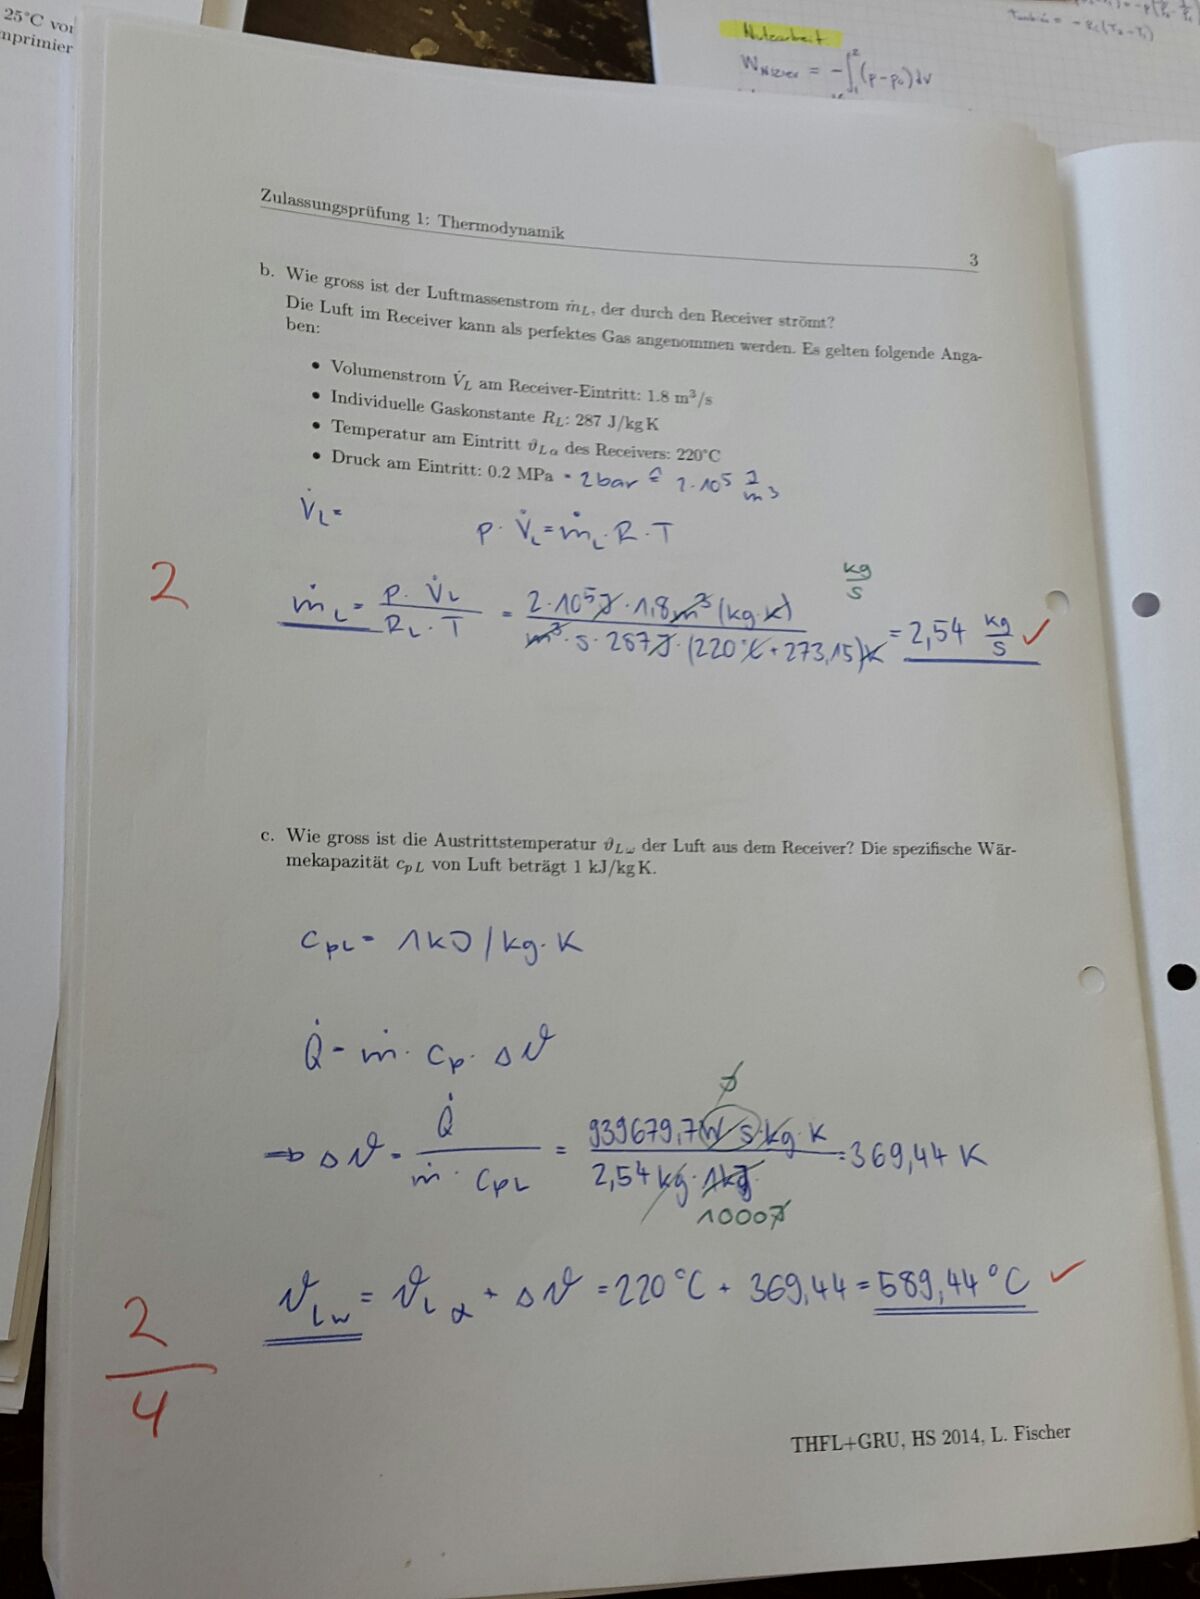 25°C vor
mprimier
Nutzarbeit:
= -∫₁² (p-p₀)dv
Zulassungsprüfung 1: Thermodynamik
3
b. Wie gross ist der Luftmassenstrom ṁL, der durch den Receiver strömt?
Die Luft im Receiver kann als perfektes Gas angenommen werden. Es gelten folgende Anga-
ben:
• Volumenstrom V̇L am Receiver-Eintritt: 1.8 m³/s
• Individuelle Gaskonstante RL: 287 J/kg K
• Temperatur am Eintritt ϑLα des Receivers: 220°C
• Druck am Eintritt: 0.2 MPa = 2bar ≙ 2·10⁵ J/m³
V̇L=
p · V̇L = ṁL · R · T
2
kg/s
ṁL = p · V̇L / RL · T = 2·10⁵J · 1,8m³ (kg·K) / m³ · s · 287J · (220°C + 273,15)K = 2,54 kg/s ✓
c. Wie gross ist die Austrittstemperatur ϑLω der Luft aus dem Receiver? Die spezifische Wär-
mekapazität cpL von Luft beträgt 1 kJ/kg K.
cpL = 1kJ/kg·K
Q̇ = ṁ · cp · Δϑ
J
⇒ Δϑ = Q̇ / ṁ · cpL = 939679,7 W s · kg · K / 2,54 kg · 1kJ = 369,44 K
1000J
ϑLω = ϑLα + Δϑ = 220°C + 369,44 = 589,44°C ✓
2
4
THFL+GRU, HS 2014, L. Fischer